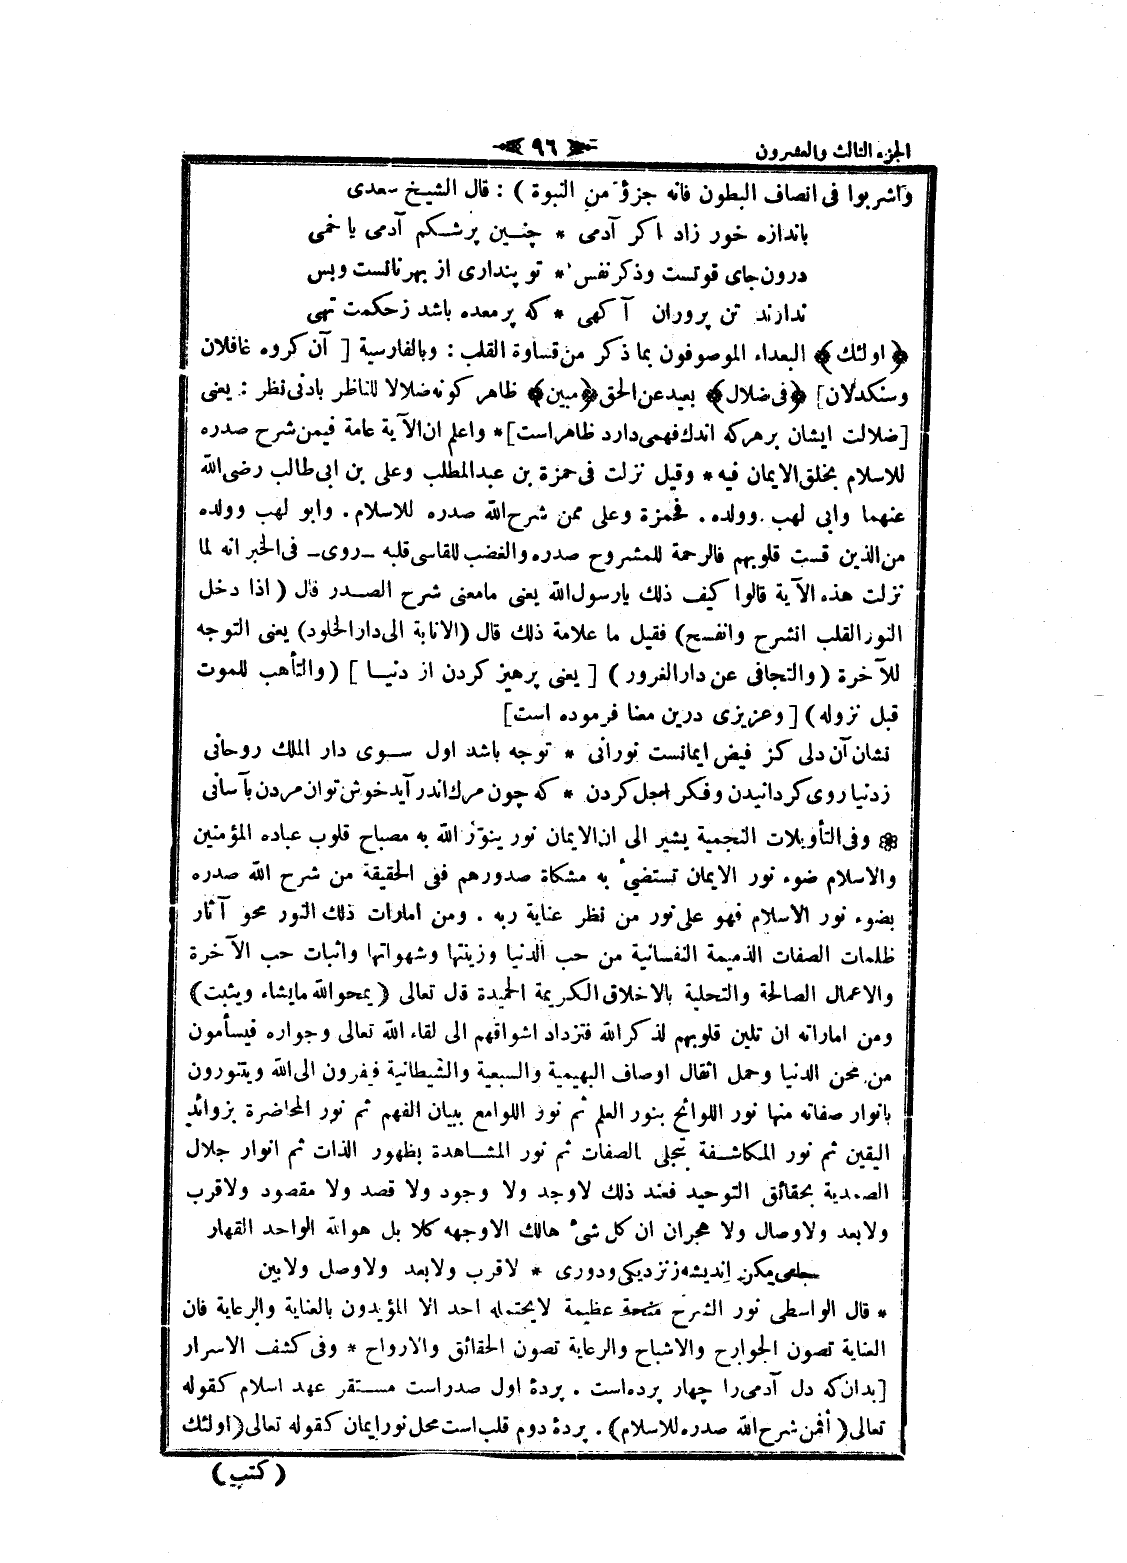 الجزء الثالث والعشرون
﴿ ٩٦ ﴾
واشربوا فى انصاف البطون فانه جزؤ من النبوة ) : قال الشيخ سعدى
باندازه خور زاد اكر آدمى * چنين پرشكم آدمى ياخمى
درون جاى قوتست وذكر نفس * تو پندارى از بهر نانست وبس
ندارند تن پروران آكهى * كه پر معده باشد زحكمت تهى
﴿ اولئك ﴾ البعداء الموصوفون بما ذكر من قساوة القلب : وبالفارسية [ آن كروه غافلان
وسنكدلان ] ﴿ فى ضلال ﴾ بعيد عن الحق ﴿ مبين ﴾ ظاهر كونه ضلالا للناظر بادنى نظر : يعنى
[ ضلالت ايشان برهركه اندك فهمى دارد ظاهراست ] * واعلم ان الآية عامة فيمن شرح صدره
للاسلام بخلق الايمان فيه * وقيل نزلت فى حمزة بن عبد المطلب وعلى بن ابى طالب رضى الله
عنهما وابى لهب وولده . فحمزة وعلى ممن شرح الله صدره للاسلام . وابو لهب وولده
من الذين قست قلوبهم فالرحمة للمشروح صدره والغضب للقاسى قلبه ـ روى ـ فى الخبر انه لما
نزلت هذه الآية قالوا كيف ذلك يارسول الله يعنى مامعنى شرح الصدر قال ( اذا دخل
النور القلب انشرح وانفسح ) فقيل ما علامة ذلك قال ( الانابة الى دار الخلود ) يعنى التوجه
للآخرة ( والتجافى عن دار الغرور ) [ يعنى پرهيز كردن از دنيا ] ( والتأهب للموت
قبل نزوله ) [ وعزيزى درين معنا فرموده است ]
نشان آن دلى كز فيض ايمانست نورانى * توجه باشد اول سوى دار الملك روحانى
زدنيا روى كردانيدن وفكر اجل كردن * كه چون مرك اندر آيد خوش توان مردن بآسانى
❀ وفى التأويلات النجمية يشير الى ان الايمان نور ينوّر الله به مصباح قلوب عباده المؤمنين
والاسلام ضوء نور الايمان تستضىء به مشكاة صدورهم ففى الحقيقة من شرح الله صدره
بضوء نور الاسلام فهو على نور من نظر عناية ربه . ومن امارات ذلك النور محو آثار
ظلمات الصفات الذميمة النفسانية من حب الدنيا وزينتها وشهواتها واثبات حب الآخرة
والاعمال الصالحة والتحلية بالاخلاق الكريمة الحميدة قل تعالى ( يمحو الله مايشاء ويثبت )
ومن اماراته ان تلين قلوبهم لذكر الله فتزداد اشواقهم الى لقاء الله تعالى وجواره فيسأمون
من محن الدنيا وحمل اثقال اوصاف البهيمية والسبعية والشيطانية فيفرون الى الله ويتنورون
بانوار صفاته منها نور اللوائح بنور العلم ثم نور اللوامع ببيان الفهم ثم نور المحاضرة بزوائد
اليقين ثم نور المكاشفة بتجلى الصفات ثم نور المشاهدة بظهور الذات ثم انوار جلال
الصمدية بحقائق التوحيد فعند ذلك لاوجد ولا وجود ولا قصد ولا مقصود ولاقرب
ولابعد ولاوصال ولا هجران ان كل شىء هالك الاوجهه كلا بل هو الله الواحد القهار
جامى مكن انديشه زنزديكى ودورى * لاقرب ولابعد ولاوصل ولابين
* قال الواسطى نور الشرح منحة عظيمة لايحتمله احد الا المؤيدون بالعناية والرعاية فان
العناية تصون الجوارح والاشباح والرعاية تصون الحقائق والارواح * وفى كشف الاسرار
[ بدان كه دل آدمى را چهار پرده است . پردۀ اول صدراست مستقر عهد اسلام كقوله
تعالى ( أفمن شرح الله صدره للاسلام ) . پردۀ دوم قلب است محل نور ايمان كقوله تعالى ( اولئك
( كتب )